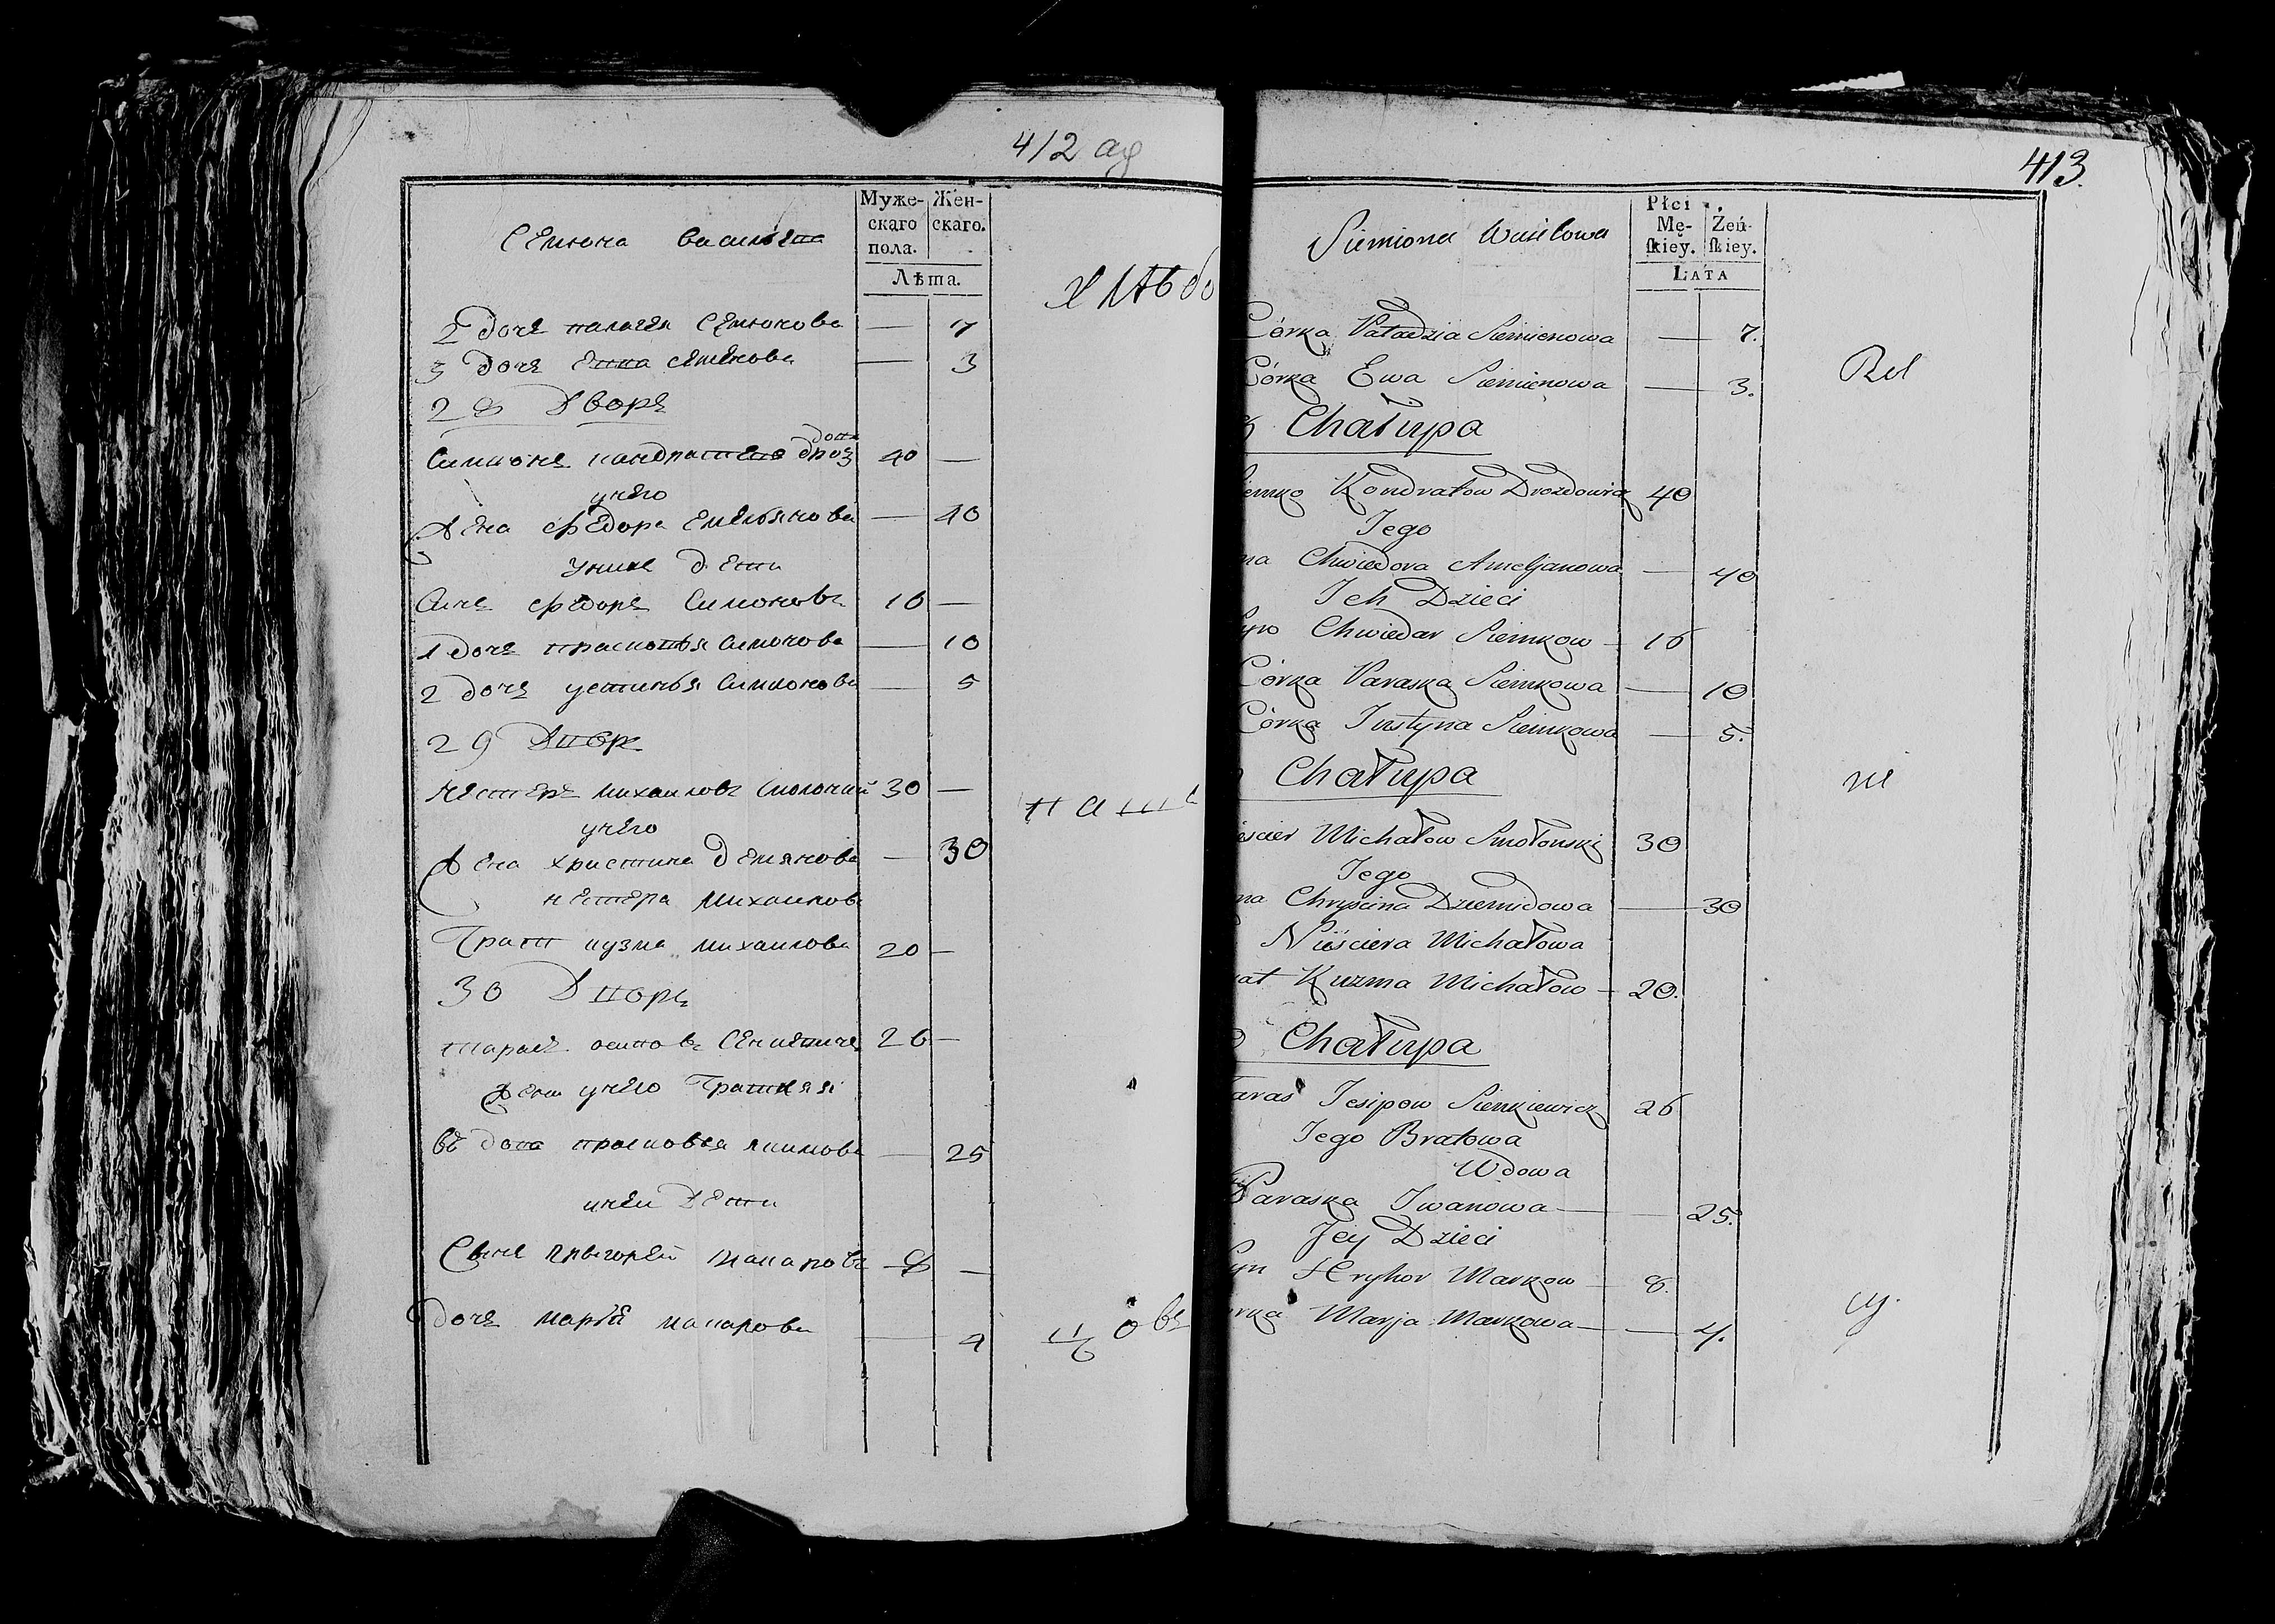 412 ад
Семиона Василева
Муже-
скаго
пола.
Жен-
скаго.
Лѣта.
2 дочь палагея Семионова — 7
3 дочь Евва Семенова — 3
28 Дворъ
Симионъ кандратевъ дроздовъ 40 —
у него
Жена Федора Емельянова — 40
у них дети
Синъ Федоръ Симоновъ 16 —
1 дочь прасковья Симонова — 10
2 дочь устинья Симионова — 5
29 Дворъ
Нестеръ михаиловъ Смолоний 30 —
у него
Жена христина демянова — 30
нестера михаилова
Брат кузма михаиловъ 20 —
30 Дворъ
тарасъ осиповъ Сенкевичъ 26 —
у него Братняя
вдова прасковея — 25
у неи дети
Сынъ григорей макаровъ 8 —
дочь мария макарова — 4
413.
Siemiona Wasilowa
Płci
Mę-
skiey.
Żeń-
skiey.
LATA
Córka Paładzia Siemienowa — 7.
Córka Ewa Siemienowa — 3.
Rel
Chałupa
iemko Kondratow Drozdowicz 40
Jego
na Chwiedora Ameljanowa — 40
Ich Dzieci
Syn Chwiedar Siemkow — 16
Córka Paraska Siemkowa — 10
Córka Justyna Siemkowa — 5.
Chałupa
ni
eścier Michałow Smołonski 30
Jego
na Chryscina Dziemidowa — 30
Nieściera Michałowa
rat Kuzma Michałow — 20.
Chałupa
Taras Jesipow Sienkiewicz 26
Jego Bratowa
Wdowa
Paraska Iwanowa — 25.
Jey Dzieci
Syn Hryhor Markow — 8.
órka Marja Markowa — 4.
cy.